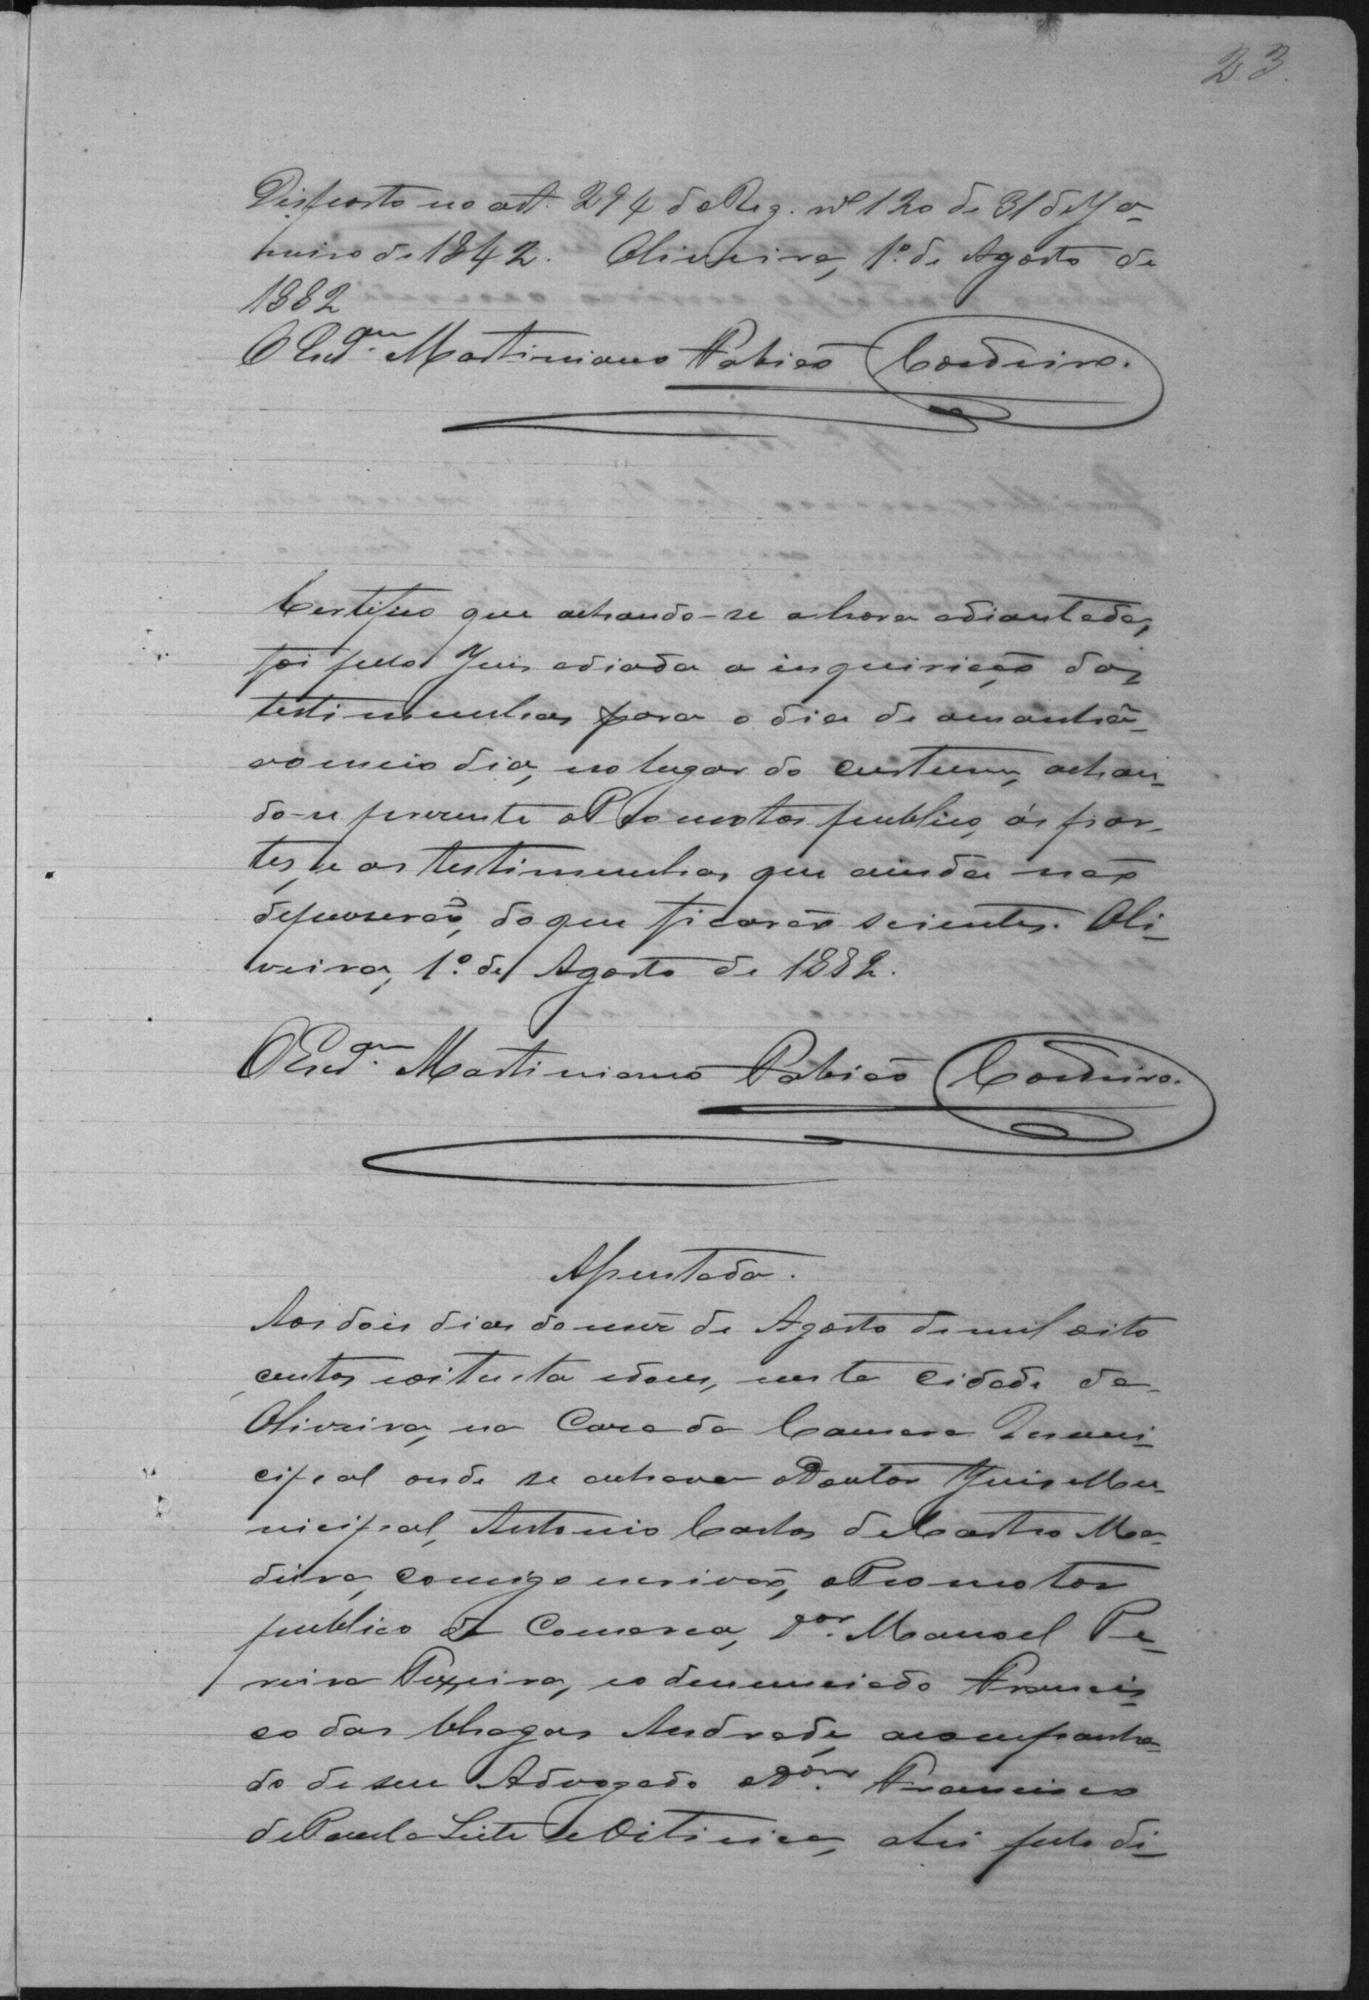 23.
Disposto no art. 294 do Reg. nº 120 de 31 de Ja-
neiro de 1842. Oliveira, 1º de Agosto de
1882
O Escr.am Martiniano Fabião Cordeiro.
Certifico que achando-se a hora adiantada,
foi pelo Juis adiada a inquirição das
testimunhas para o dia de amanhã
ao meio dia, no lugar do custume, achan-
do-se prezente o Promotor publico, ás par-
tes, e as testimunhas que ainda não
depuzerão, do que ficarão scientes. Oli-
veira, 1º de Agosto de 1882.
O Escr.am Martiniano Fabião Cordeiro.
Assentada.
Aos dois dias do mez de Agosto de mil oito
centos e oitenta e dous, nesta Cidade da
Oliveira, na Casa da Camara Muni-
cipal onde se achava o Doutor Juis Mu-
nicipal, Antonio Carlos de Castro Ma-
deira, comigo escrivão, o Promotor
publico da Comarca, D.or Manoel Pe-
reira Teixeira, e o denunciado Francis-
co das Chagas Andrade, acompanha-
do de seu Advogado o D.or Francisco
de Paula Leite e Oiticica, ahi pelo di-